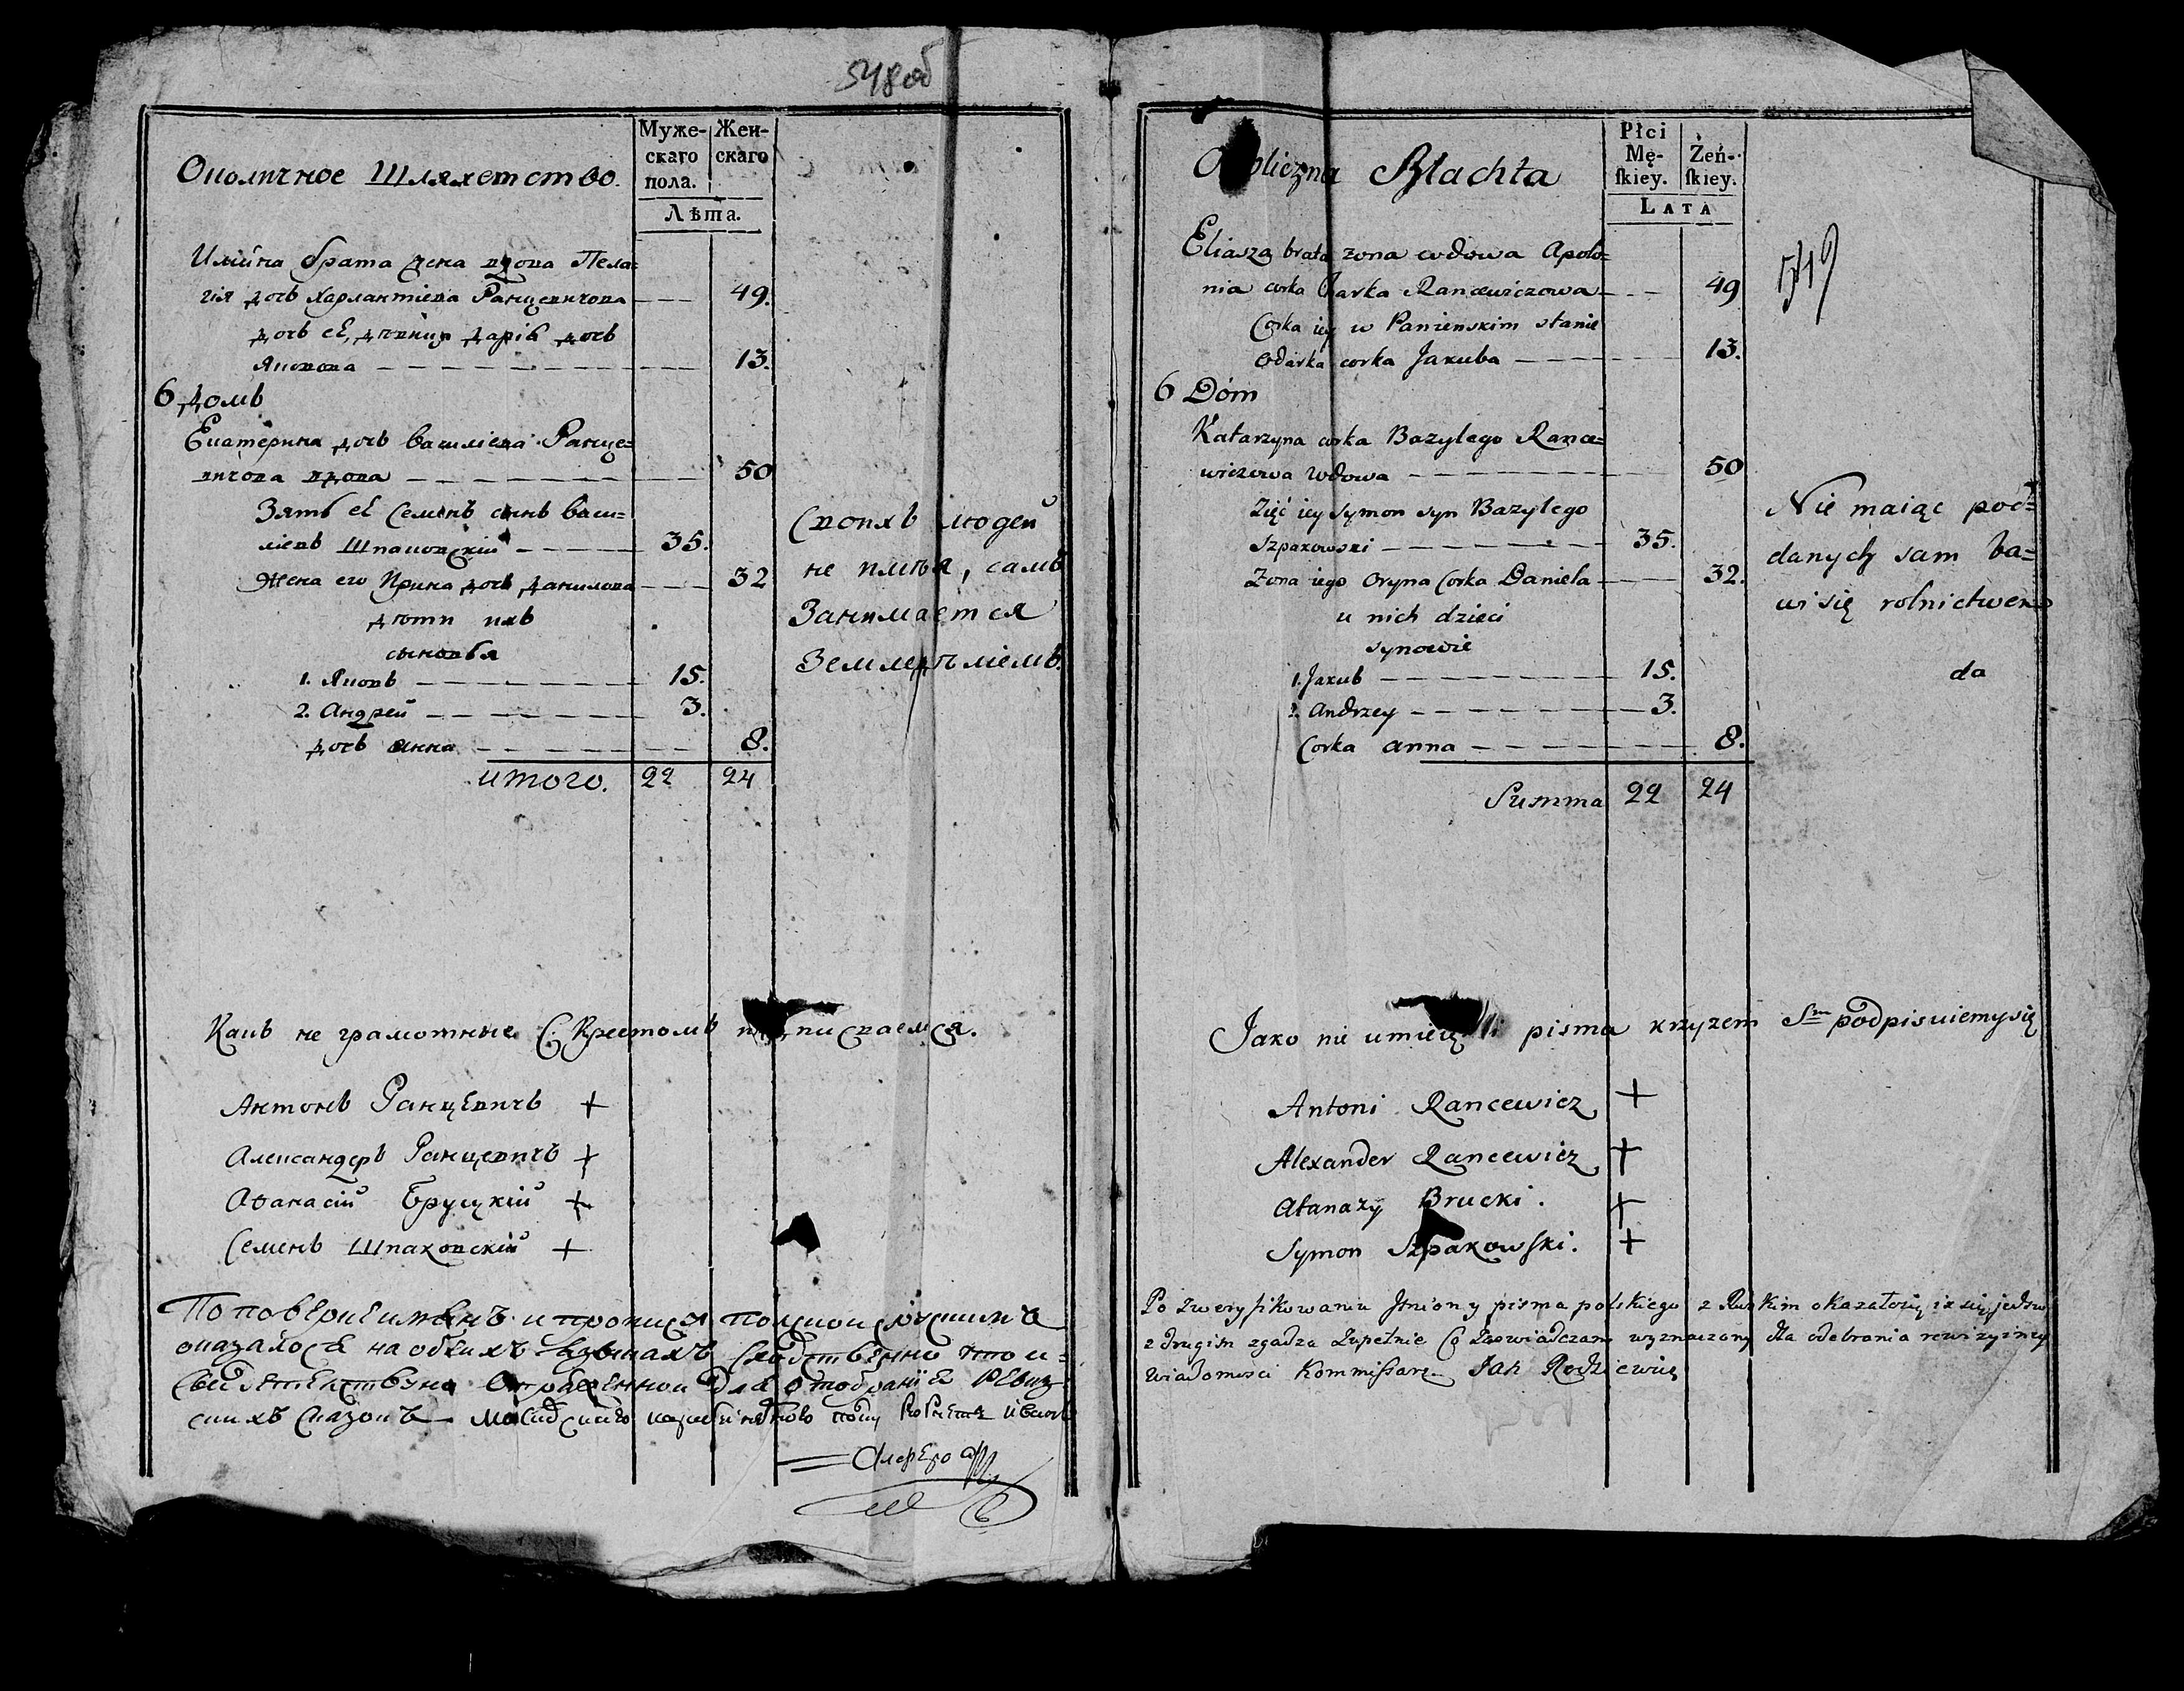 548об
Околичное Шляхетство.
Муже-
скаго
пола.
Жен-
скаго
Лѣта.
Илийна брата жена вдова Пела=
гія дочь Харлантіева Ранцевичова — — 49.
дочь её, дѣвица Дарія дочь
Якова — — — 13.
6 Домъ
Екатерина дочь Василіева Ранце=
вичова вдова — — — 50
Зять её Семенъ сынъ Васи=
ліевъ Шпаковскій — — — 35.
Жена его Ирина дочь Данилова — — 32
дѣти ихъ
сыновья
1. Яковъ — — — 15.
2. Андрей — — — 3.
дочь Анна — — — 8.
итого. 22 24
Своихъ людей
не имѣя, самъ
Занимается
Земледѣліемъ.
Какъ не грамотные С. Крестомъ подписваемся.
Антонъ Ранцевичъ +
Александръ Ранцевичъ +
Аѳанасій Бруцкій +
Семенъ Шпаковскій +
оказалося на обеихъ
для отобранія Ревиз
скихъ Сказокъ
Okoliczna Szlachta
Płci
Mę-
ſkiey.
Żeń-
ſkiey.
LATA
549
Eliasza brata zona wdowa Apolo=
nia corka Charka Rancewiczowa — — 49
Corka iey w Panienskim stanie
Odarka corka Jakuba — — — 13.
6 Dóm
Katarzyna corka Bazylego Rance=
wiczowa wdowa — — — 50
Zięć iey Symon syn Bazylego
Szpakowski — — — 35.
Zona iego Oryna Corka Daniela — — 32.
u nich dzieci
synowie
1. Jakub — — — 15.
2. Andrzey — — — 3.
Corka anna — — — 8.
Summa 22 24
Nie maiąc pod=
danych sam ba=
wi się rolnictwem
da
Jako nie umieięcy pisma krzyzem Sm podpisuiemy się
Antoni Rancewicz +
Alexander Rancewicz +
Atanazy Brucki. +
Symon Szpakowſki. +
Po zweryfikowaniu pisma polskiego z Ruskim okazałosię iz się jedno
z drugim zgadza Zupełnie Co Zaswiadczam wyznaczony dla odebrania rewizyiney
wiadomosci Kommiſsarz Jan Rodziewicz